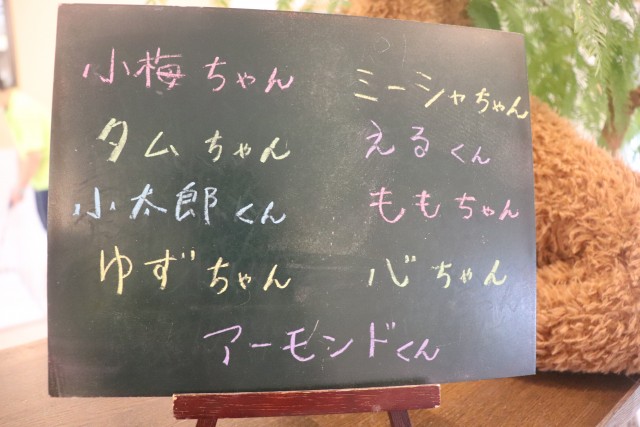 小梅ちゃん
ミーシャちゃん
タムちゃん
えるくん
小太郎くん
ももちゃん
ゆずちゃん
心ちゃん
アーモンドくん